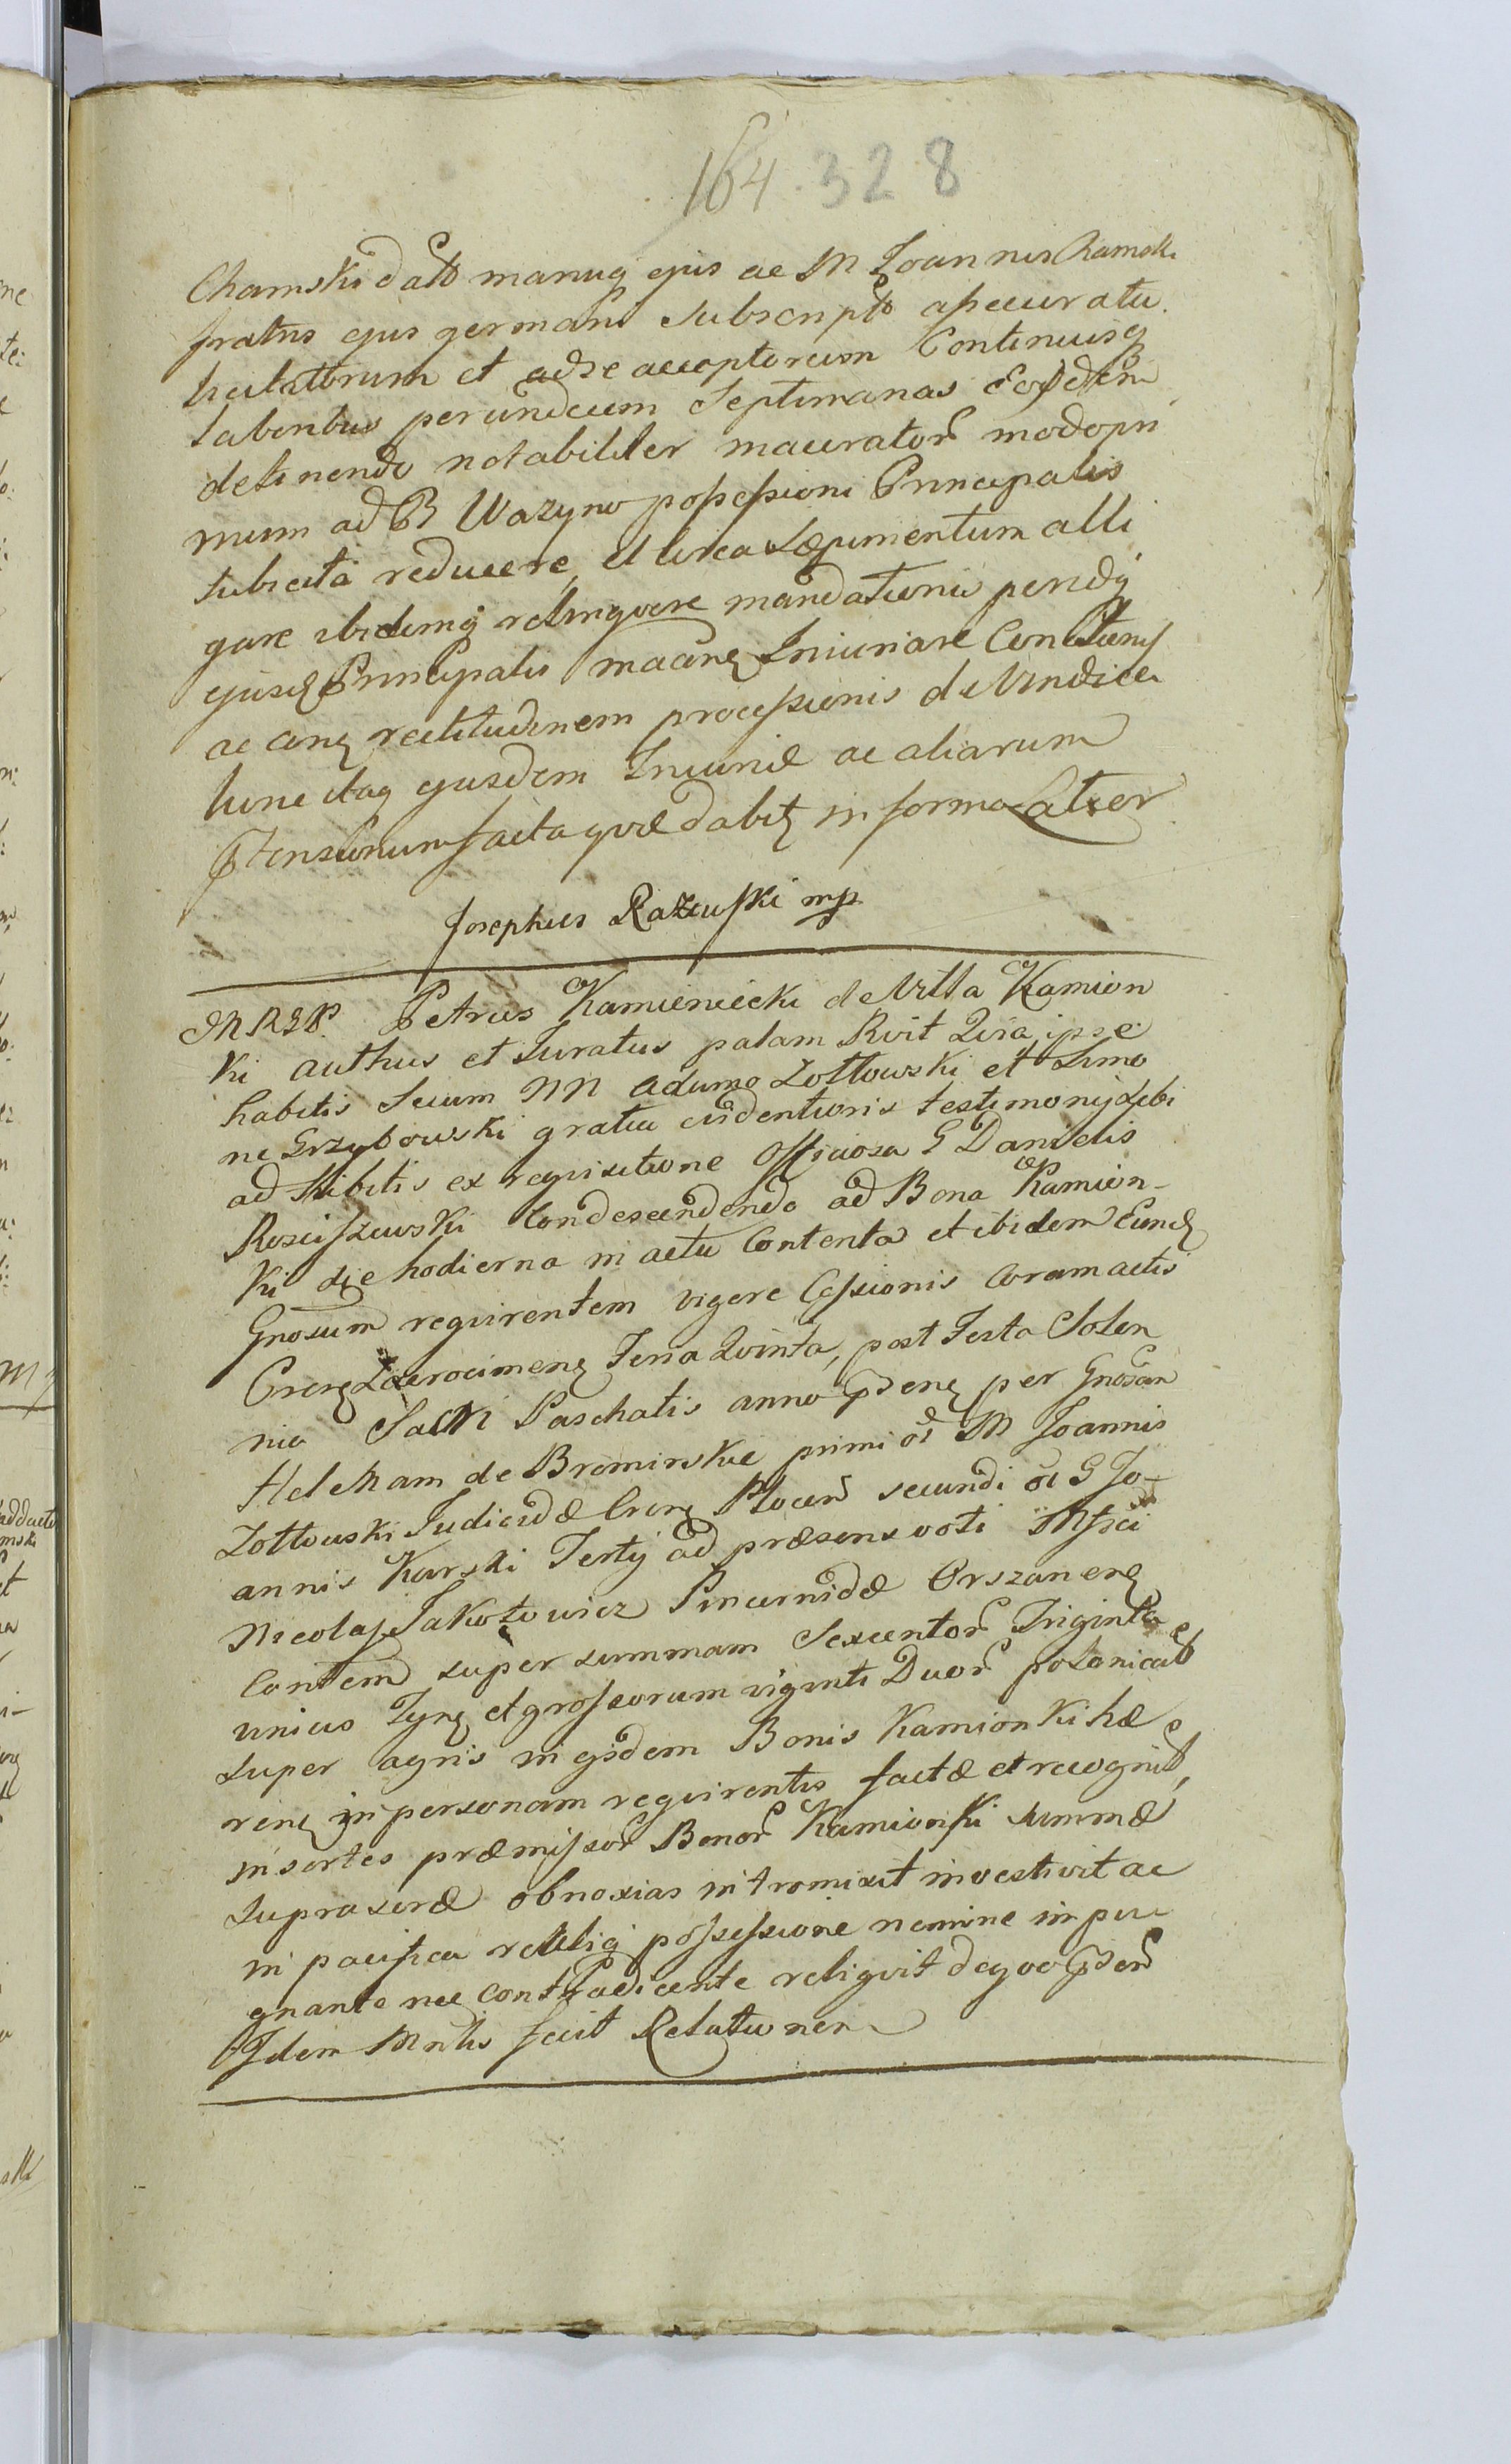 164. 328
Chamski dato manuq ejus ac M Joannis Chamski
fratris ejus germani subscripto assecuratu
licitatorum et ad se acceptorum Continuisq
labenbus per undecem Septimanas Eosdem
detinendo notabiliter macerator modo pri
mum ad B Wazyno possessioni Principalis
subiecta reducere, et circa Sæpimentum alli
gare ibidemq relinqvere mandationi pendy
ejusd Principalis
ac renq rectitudinem processionis de Vindica
tione itaq ejusdem Iniuriæ ac aliarum
Ptensionum facta qvæ dabit in forma Later
Josephus Rażewski mp.
Petrus Kamieniecki de Villa Kamion
ki authus et Juratus palam Rvit Quia ipse
habitis Secum NN Adamo Zołtowski et Simo
ne Grzybowski gratia evidentioris testimonij sibi
adhibitis ex reqvisitione Officiosa G Danielis
Rosciszewski Condescendendo ad Bona Kamion-
ki die hodierna in actu Contenta et ibidem Eund
Gnosum reqvirentem vigore Cessionis Coram actis
Cren Zawrocimen Feria Qvinta, post Festa Solen
nia Sacri Paschatis anno Psen per Gnosan
Helenam de Bromirskie primi oi M Joannis
Zołtowski Judicidæ Cren Plocen secundi oi G Jo-
annis Karski Tertij ad præsens voti Mfici
Nicolaj Jakołowicz Pincernidæ Orszanen
Contem super summam Sexcentor Triginta
unius Tyn et grossorum viginti Duor polonical
super agris in ejsdem Bonis Kamionki hæ
ren in personam reqvirentis factæ et recognit,
in sortes præmissor Bonor Kamionki summæ
supraxeræ obnoxias intromisit investivit ac
in pacifica reliq possessione nemine impu
gnante nec contradicente reliqvit de qvo Psen
Idem Mntis fecit Relationem